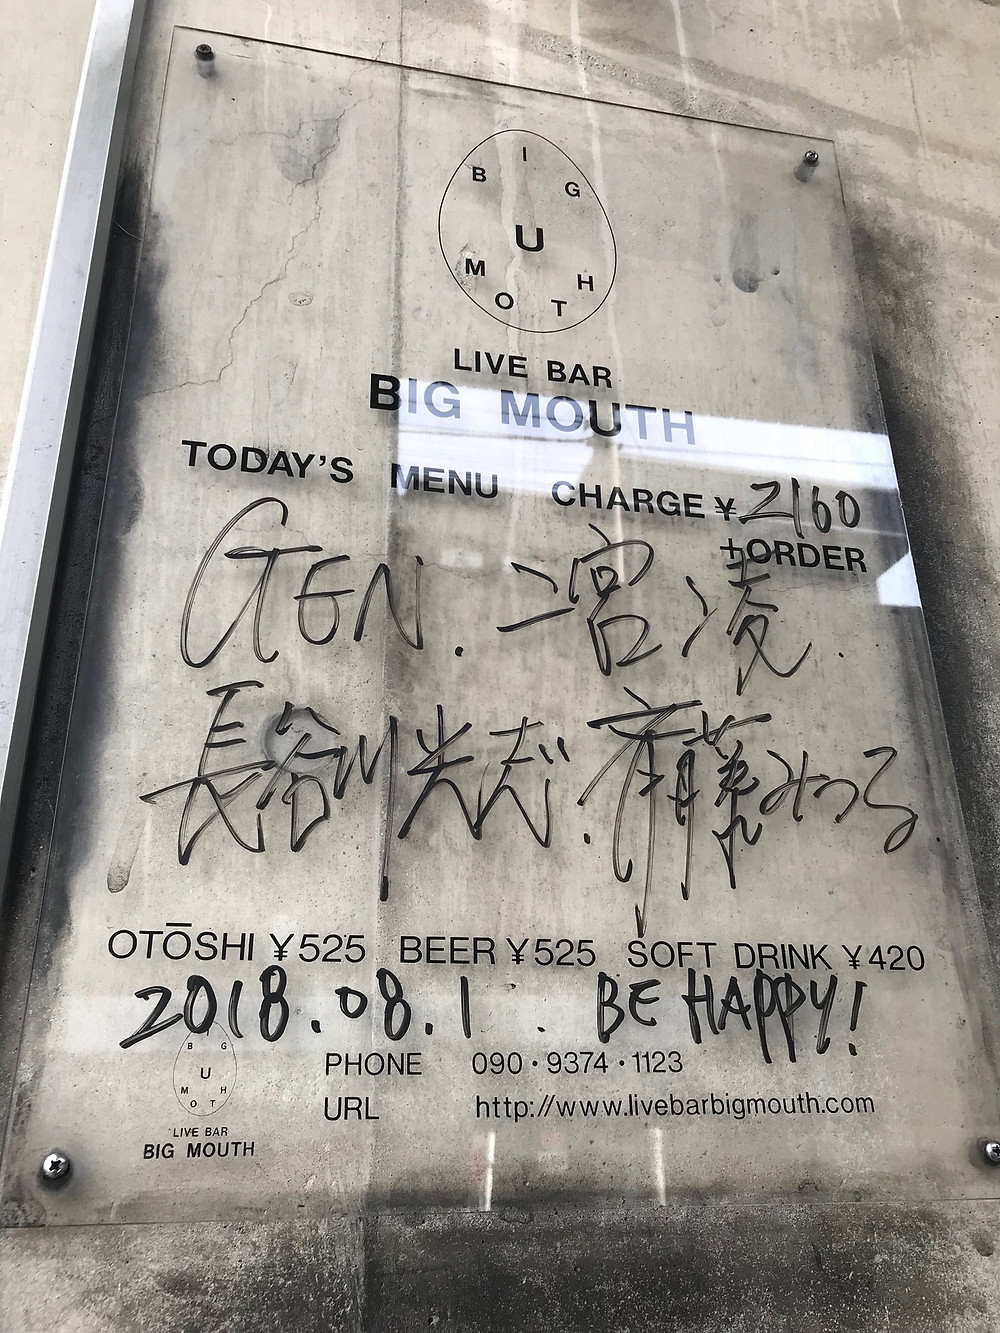 BIG
MOUTH
LIVE BAR
BIG MOUTH
TODAY'S MENU CHARGE ¥2160
+ORDER
GEN. 二宮凌.
長谷川光志. 齊藤みつる
OTŌSHI ¥525 BEER ¥525 SOFT DRINK ¥420
2018.08.1 . BE HAPPY!
BIG
MOUTH
LIVE BAR
BIG MOUTH
PHONE 090・9374・1123
URL http://www.livebarbigmouth.com